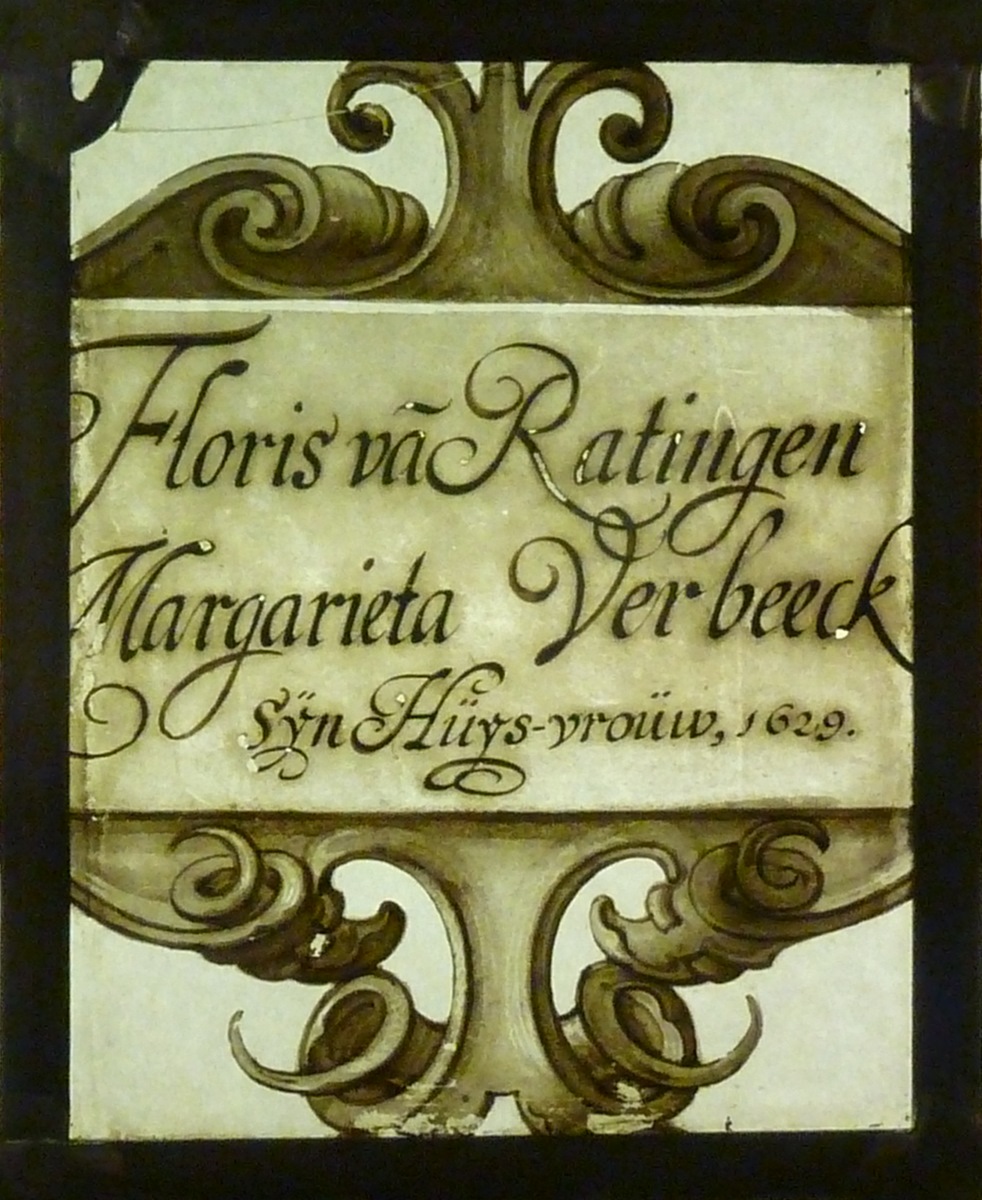 Floris vā Ratingen
Margarieta Verbeeck
Sÿn Hüÿs-vroüw, 1629.